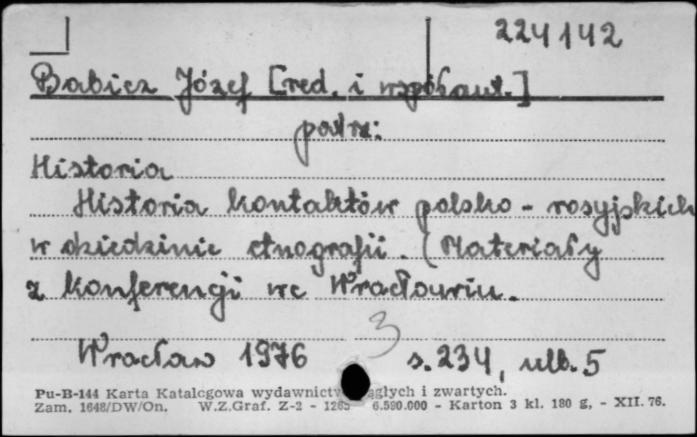 224142
Babicz Józef [red. i współaut.]
patrz:
Historia
Historia kontaktów polsko - rosyjskich
w dziedzinie etnografii. (Materiały
z konferencji we Wrocławiu.
3
Wrocław 1976 s. 234, nlb. 5
Pu-B-144 Karta Katalogowa wydawnictw ciągłych i zwartych.
Zam. 1648/DW/On. W.Z.Graf. Z-2 - 6.590.000 - Karton 3 kl. 180 g, - XII. 76.